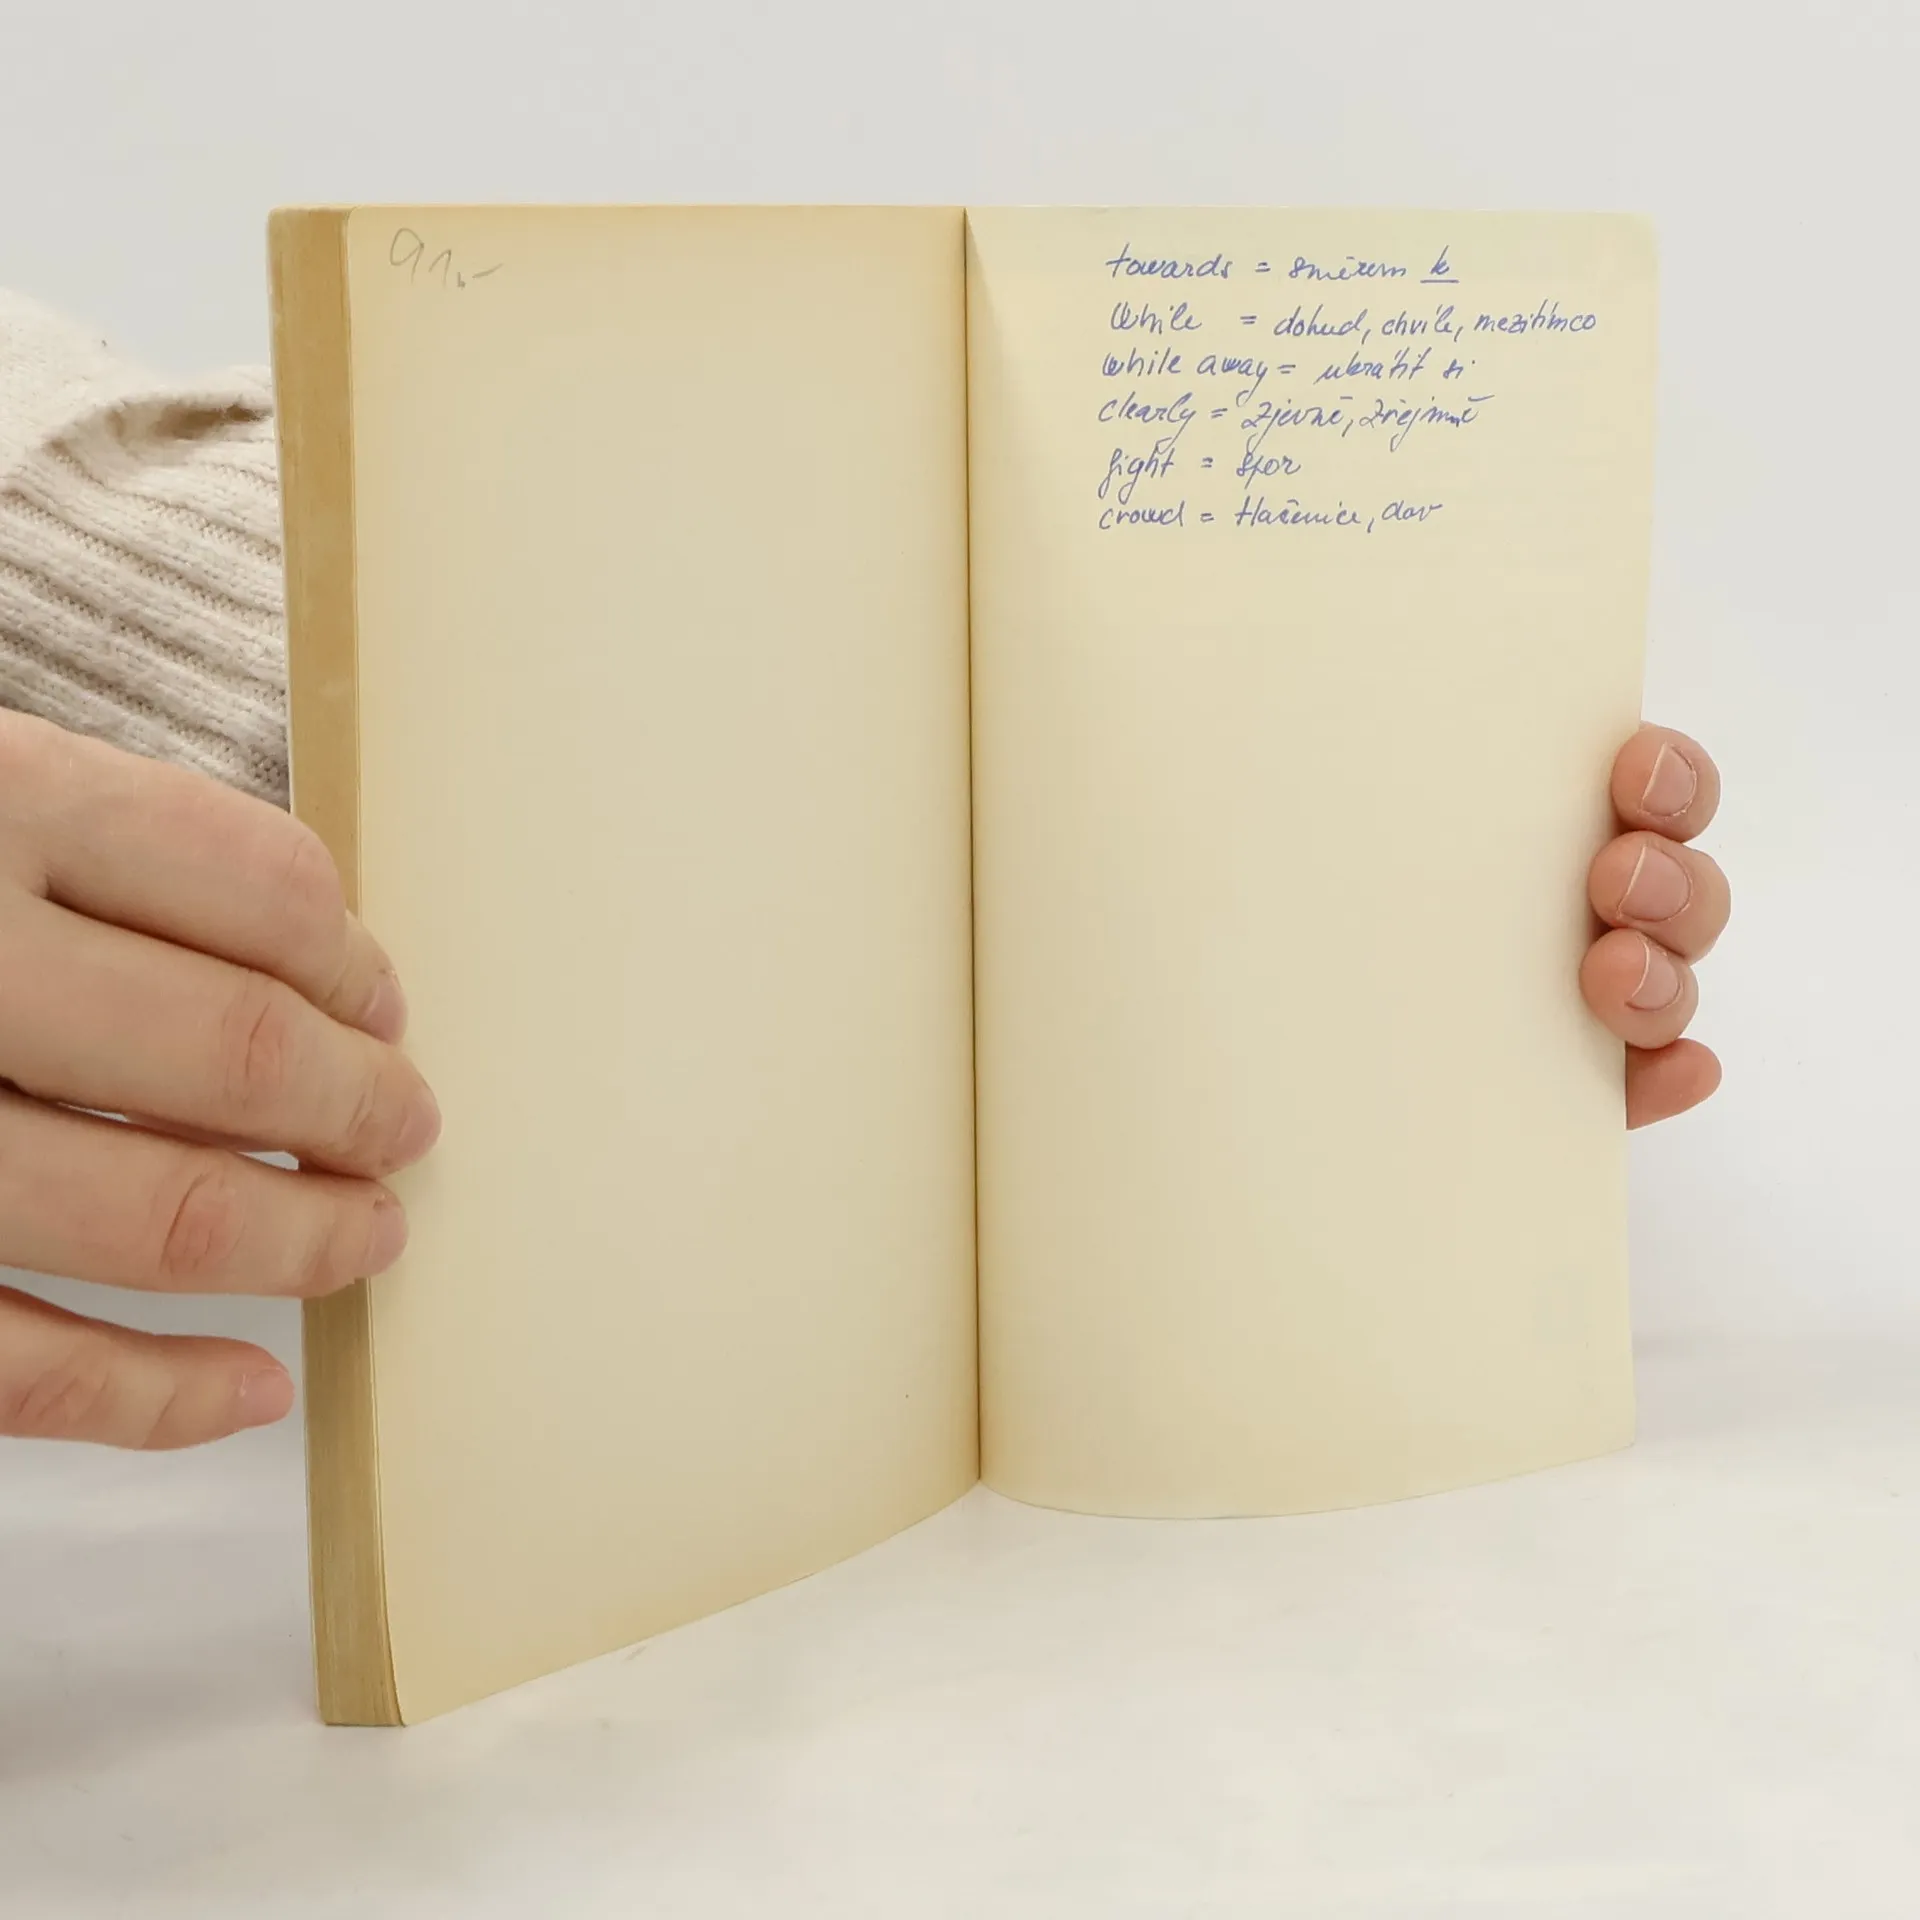 91,-
towards = směrem k
while = dokud, chvíle, mezitímco
while away = ukrátit si
clearly = zjevně, zřejmně
fight = spor
crowd = tlačenice, dav